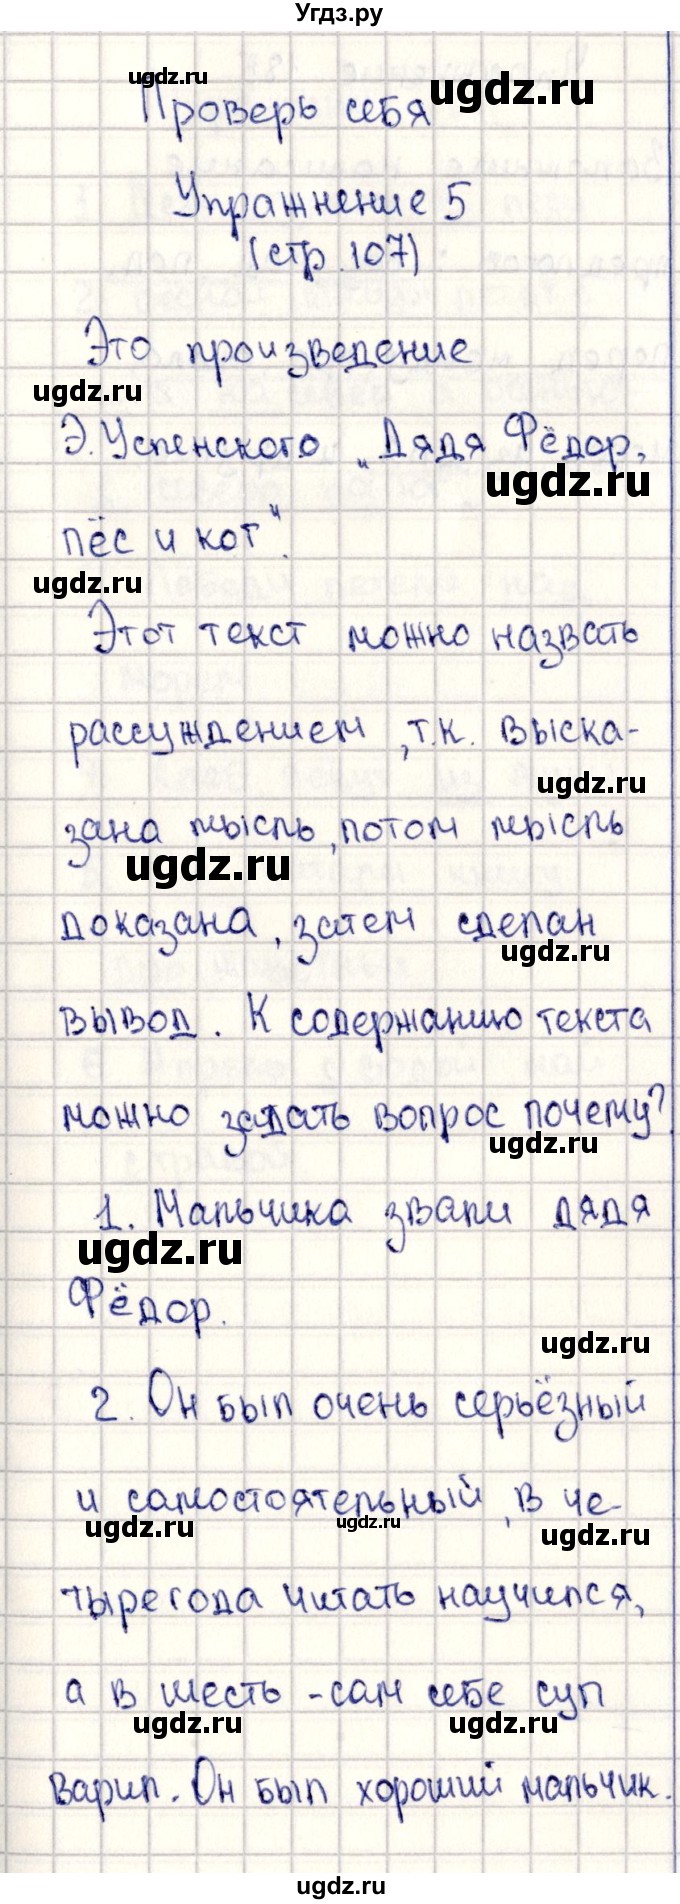 Угдз.ру
ugdz.ru
ugdz.ru
Проверь себя
Упражнение 5
(стр. 107)
Это произведение
ugdz.ru
Э. Успенского „Дядя Фёдор,
ugdz.ru
пёс и кот“.
ugdz.ru
Этот текст можно назвать
рассуждением, т.к. выска-
ugdz.ru
зана мысль, потом мысль
ugdz.ru
доказана, затем сделан
ugdz.ru
вывод. К содержанию текста
можно задать вопрос почему?
ugdz.ru
1. Мальчика звали дядя
ugdz.ru
Фёдор.
ugdz.ru
2. Он был очень серьёзный
и самостоятельный, в че-
ugdz.ru ugdz.ru ugdz.ru
тыре года читать научился,
а в шесть - сам себе суп
ugdz.ru ugdz.ru
варил. Он был хороший мальчик.
ugdz.ru